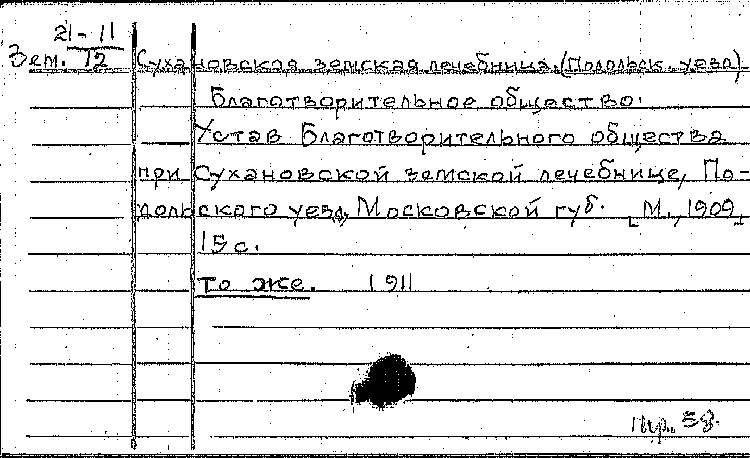 21-11
Зем. 12
Сухановская земская лечебница. (Подольск. уезд).
Благотворительное общество.
Устав Благотворительного общества
при Сухановской земской лечебнице, По-
дольского уезда, Московской губ. [М., 1909]
15 с.
То же. 1911